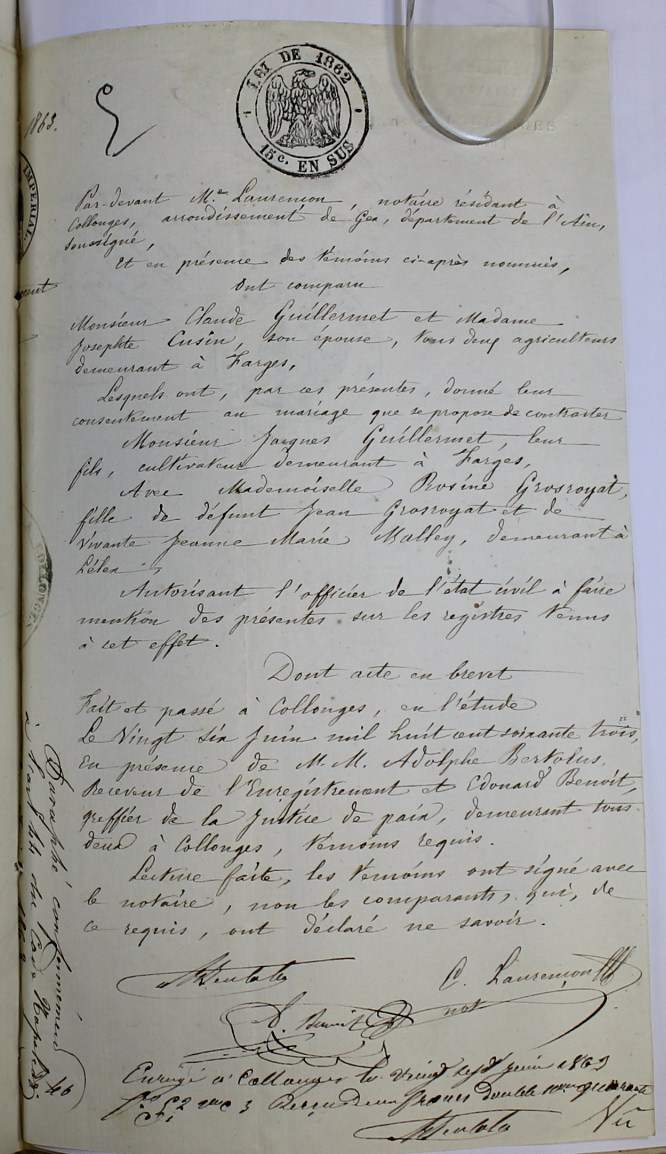 LOI DE 1862
15c. EN SUS
1863.
IMPERIAL
Par-devant Me. Laurençon, notaire résidant à
Collonges, arrondissement de Gex, département de l'Ain,
soussigné,
Et en présence des témoins ci-après nommés,
Ont comparu
Monsieur Claude Guillermet et Madame
Josephte Cusin, son épouse, tous deux agriculteurs
demeurant à Farges,
Lesquels ont, par ces présentes, donné leur
consentement au mariage que se propose de contracter
Monsieur Jacques Guillermet, leur
fils, cultivateur demeurant à Farges,
Avec Mademoiselle Rosine Grosroyat,
fille de défunt Jean Grosroyat et de
vivante Jeanne Marie Malley, demeurant à
Lélex
Autorisant l'officier de l'état civil à faire
mention des présentes sur les registres tenus
à cet effet.
Dont acte en brevet
Fait et passé à Collonges, en l'étude
Le vingt six Juin mil huit cent soixante trois,
En présence de M.M. Adolphe Bertolus,
Receveur de l'Enregistrement et Edouard Benoit,
greffier de la Justice de paix, demeurant tous
deux à Collonges, témoins requis.
Lecture faite, les témoins ont signé avec
le notaire, non les comparants, qui, de
ce requis, ont déclaré ne savoir.
C. Laurençon
not
Benoit
Enregé à Collonges le vingt sept juin 1863
Reçu deux francs double quarante
Vu
Paraphé conformément
à l'art. 44 du Code Napoléon